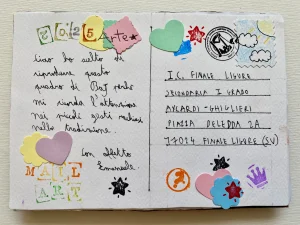 2025 Arte
Ciao ho scelto di
riprodurre questo
quadro di Baj perché
mi ricorda l'attenzione
nei piccoli gesti radicati
nella tradizione.
Con affetto
Emanuele
MAIL
ART
I.C. FINALE LIGURE
SECONDARIA I GRADO
AYCARDI-GHIGLIERI
PIAZZA DELEDDA 2A
17024 FINALE LIGURE (SV)